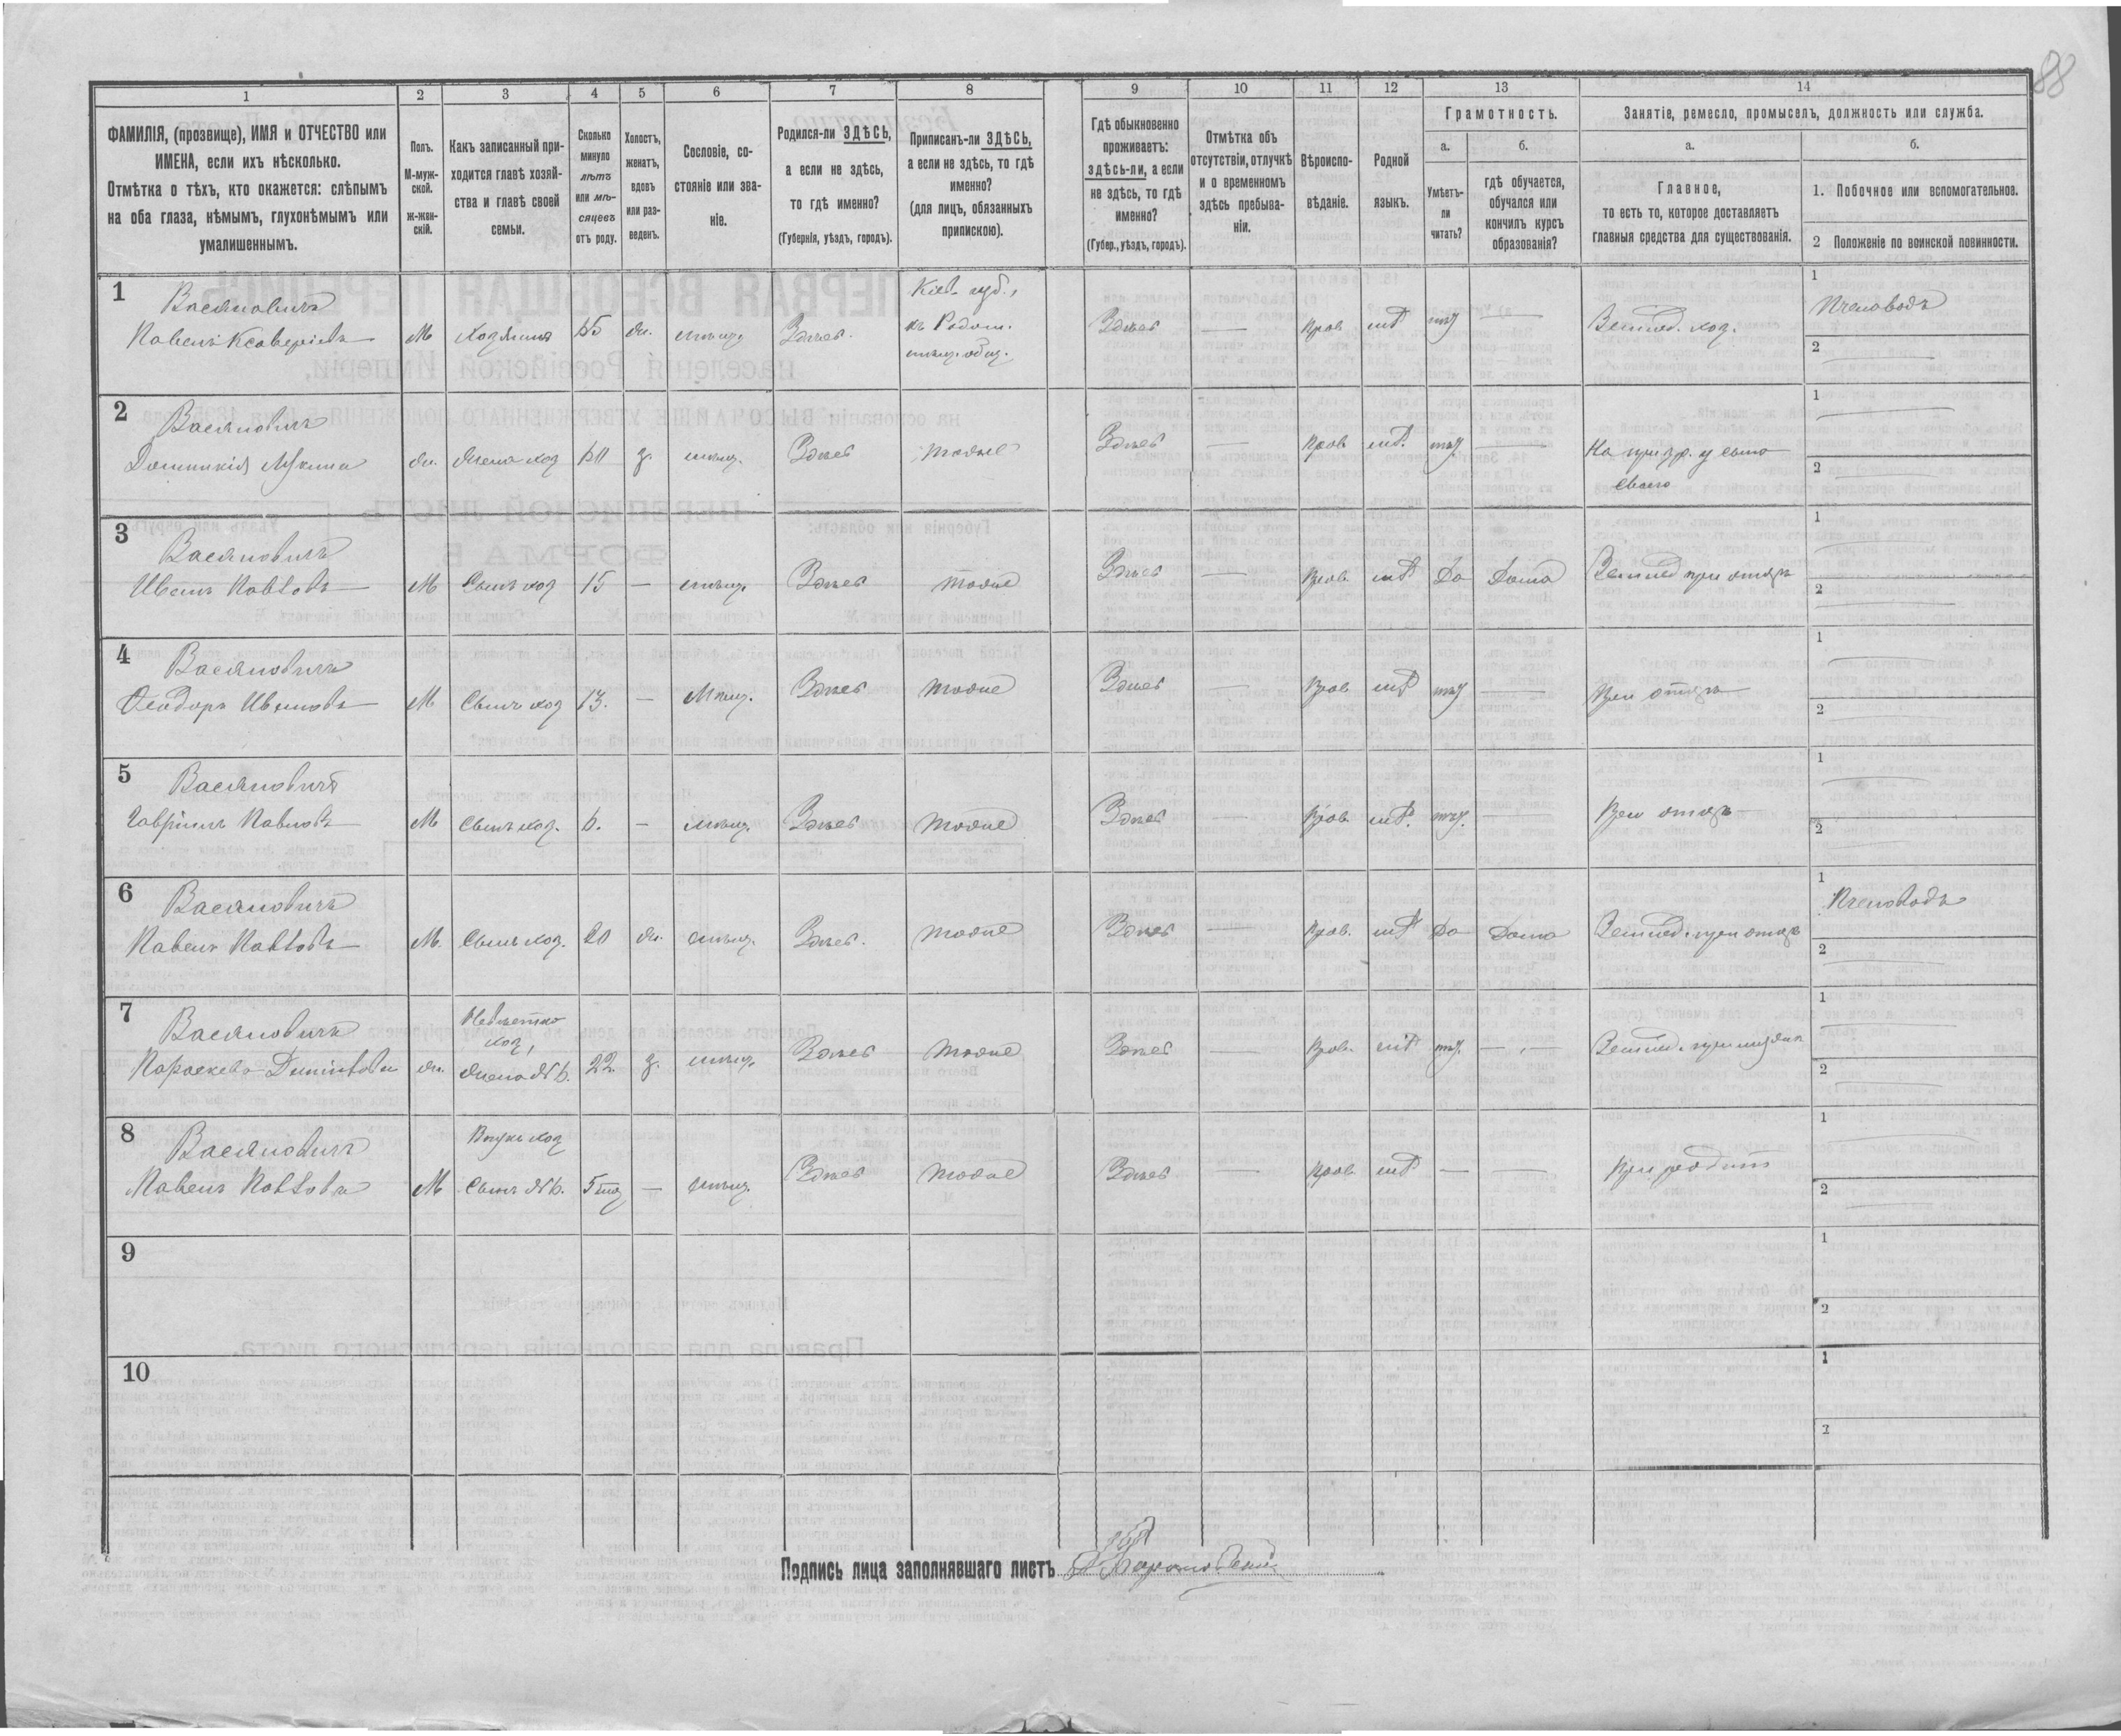 88
1
2
3
4
5
6
7
8
9
10
11
12
13
14
ФАМИЛІЯ, (прозвище), ИМЯ и ОТЧЕСТВО или
ИМЕНА, если ихъ нѣсколько.
Отмѣтка о тѣхъ, кто окажется: слѣпымъ
на оба глаза, нѣмымъ, глухонѣмымъ или
умалишеннымъ.
Полъ.
М-муж-
ской.
ж-жен-
скій.
Какъ записанный при-
ходится главѣ хозяй-
ства и главѣ своей
семьи.
Сколько
минуло
лѣтъ
или мѣ-
сяцевъ
отъ роду.
Холостъ,
женатъ,
вдовъ
или раз-
веденъ.
Сословіе, со-
стояніе или зва-
ніе.
Родился-ли ЗДѢСЬ,
а если не здѣсь,
то гдѣ именно?
(Губернія, уѣздъ, городъ).
Приписанъ-ли ЗДѢСЬ,
а если не здѣсь, то гдѣ
именно?
(для лицъ, обязанныхъ
припискою).
Гдѣ обыкновенно
проживаетъ:
здѣсь-ли, а если
не здѣсь, то гдѣ
именно?
(Губер., уѣздъ, городъ).
Отмѣтка объ
отсутствіи, отлучкѣ
и о временномъ
здѣсь пребыва-
ніи.
Вѣроиспо-
вѣданіе.
Родной
языкъ.
Грамотность.
а.
Умѣетъ-
ли
читать?
б.
гдѣ обучается,
обучался или
кончилъ курсъ
образованія?
Занятіе, ремесло, промыселъ, должность или служба.
а.
Главное,
то есть то, которое доставляетъ
главныя средства для существованія.
б.
1. Побочное или вспомогательное.
2 Положеніе по воинской повинности.
1
Васяновичъ
Павелъ Ксаверіевъ
М Хозяинъ 65 ж. мѣщ. Здѣсь.
Кіев. губ.,
къ Радом.
мѣщ. общ.
Здѣсь — прав. мР нѣт — Землед. хоз.
1 Пчеловодъ
2
2
Васяновичъ
ж. Жена хоз 60 з. мѣщ. Здѣсь тоже Здѣсь — прав мР. нѣт —
своего
1
2
3
Васяновичъ
Иванъ Павловъ
М Сынъ хоз 15 — мѣщ. Здѣсь тоже Здѣсь — прав. мР Да Дома Землед при отцѣ
1
2
4
Васяновичъ
Феодоръ Ивановъ
М Сынъ хоз 13. — Мѣщ. Здѣсь тоже Здѣсь — прав мР нѣт — При отцѣ
1
2
5
Васяновичъ
Гавріилъ Павловъ
М Сынъ хоз. 6. — мѣщ. Здѣсь тоже Здѣсь — прав. мР. нѣт. — При отцѣ
1
2
6
Васяновичъ
Павелъ Павловъ
М. Сынъ хоз. 20 ж. мѣщ. Здѣсь. тоже Здѣсь — прав. мР Да Дома Землед. при отцѣ
1 Пчеловодъ
2
7
Васяновичъ
Невѣстка
хоз,
ж. Жена №6. 22. з. мѣщ. Здѣсь тоже Здѣсь — прав. мР нѣт. — Землед. при мужѣ
1
2
8
Васяновичъ
Внукъ хоз
Павелъ Павловъ
М Сынъ №6. — мѣщ. Здѣсь тоже Здѣсь — прав мР — —
1
2
9
1
2
10
1
2
Подпись лица заполнявшаго листъ